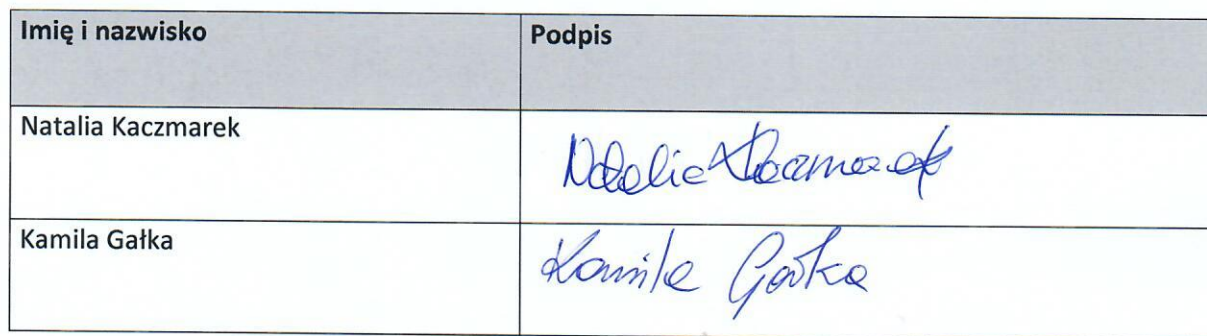 Imię i nazwisko Podpis
Natalia Kaczmarek Natalia Kaczmarek
Kamila Gałka Kamila Gałka